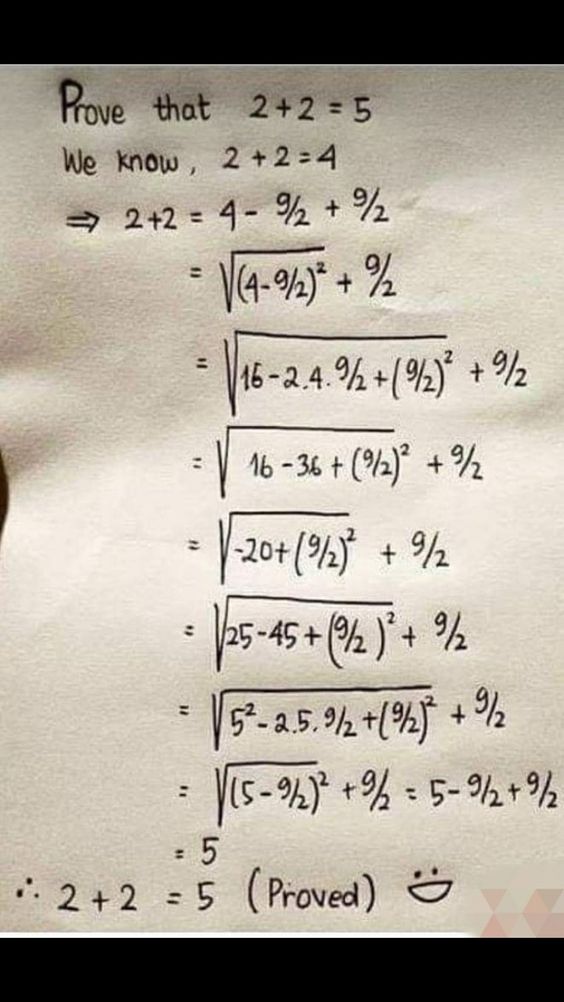 Prove that 2+2 = 5
We know, 2+2=4
⇒ 2+2 = 4 - 9/2 + 9/2
= √(4-9/2)² + 9/2
= √16-2.4.9/2+(9/2)² + 9/2
= √16-36+(9/2)² + 9/2
= √-20+(9/2)² + 9/2
= √25-45+(9/2)² + 9/2
= √5²-2.5.9/2+(9/2)² + 9/2
= √(5-9/2)² + 9/2 = 5-9/2+9/2
= 5
∴ 2+2 = 5 (Proved)